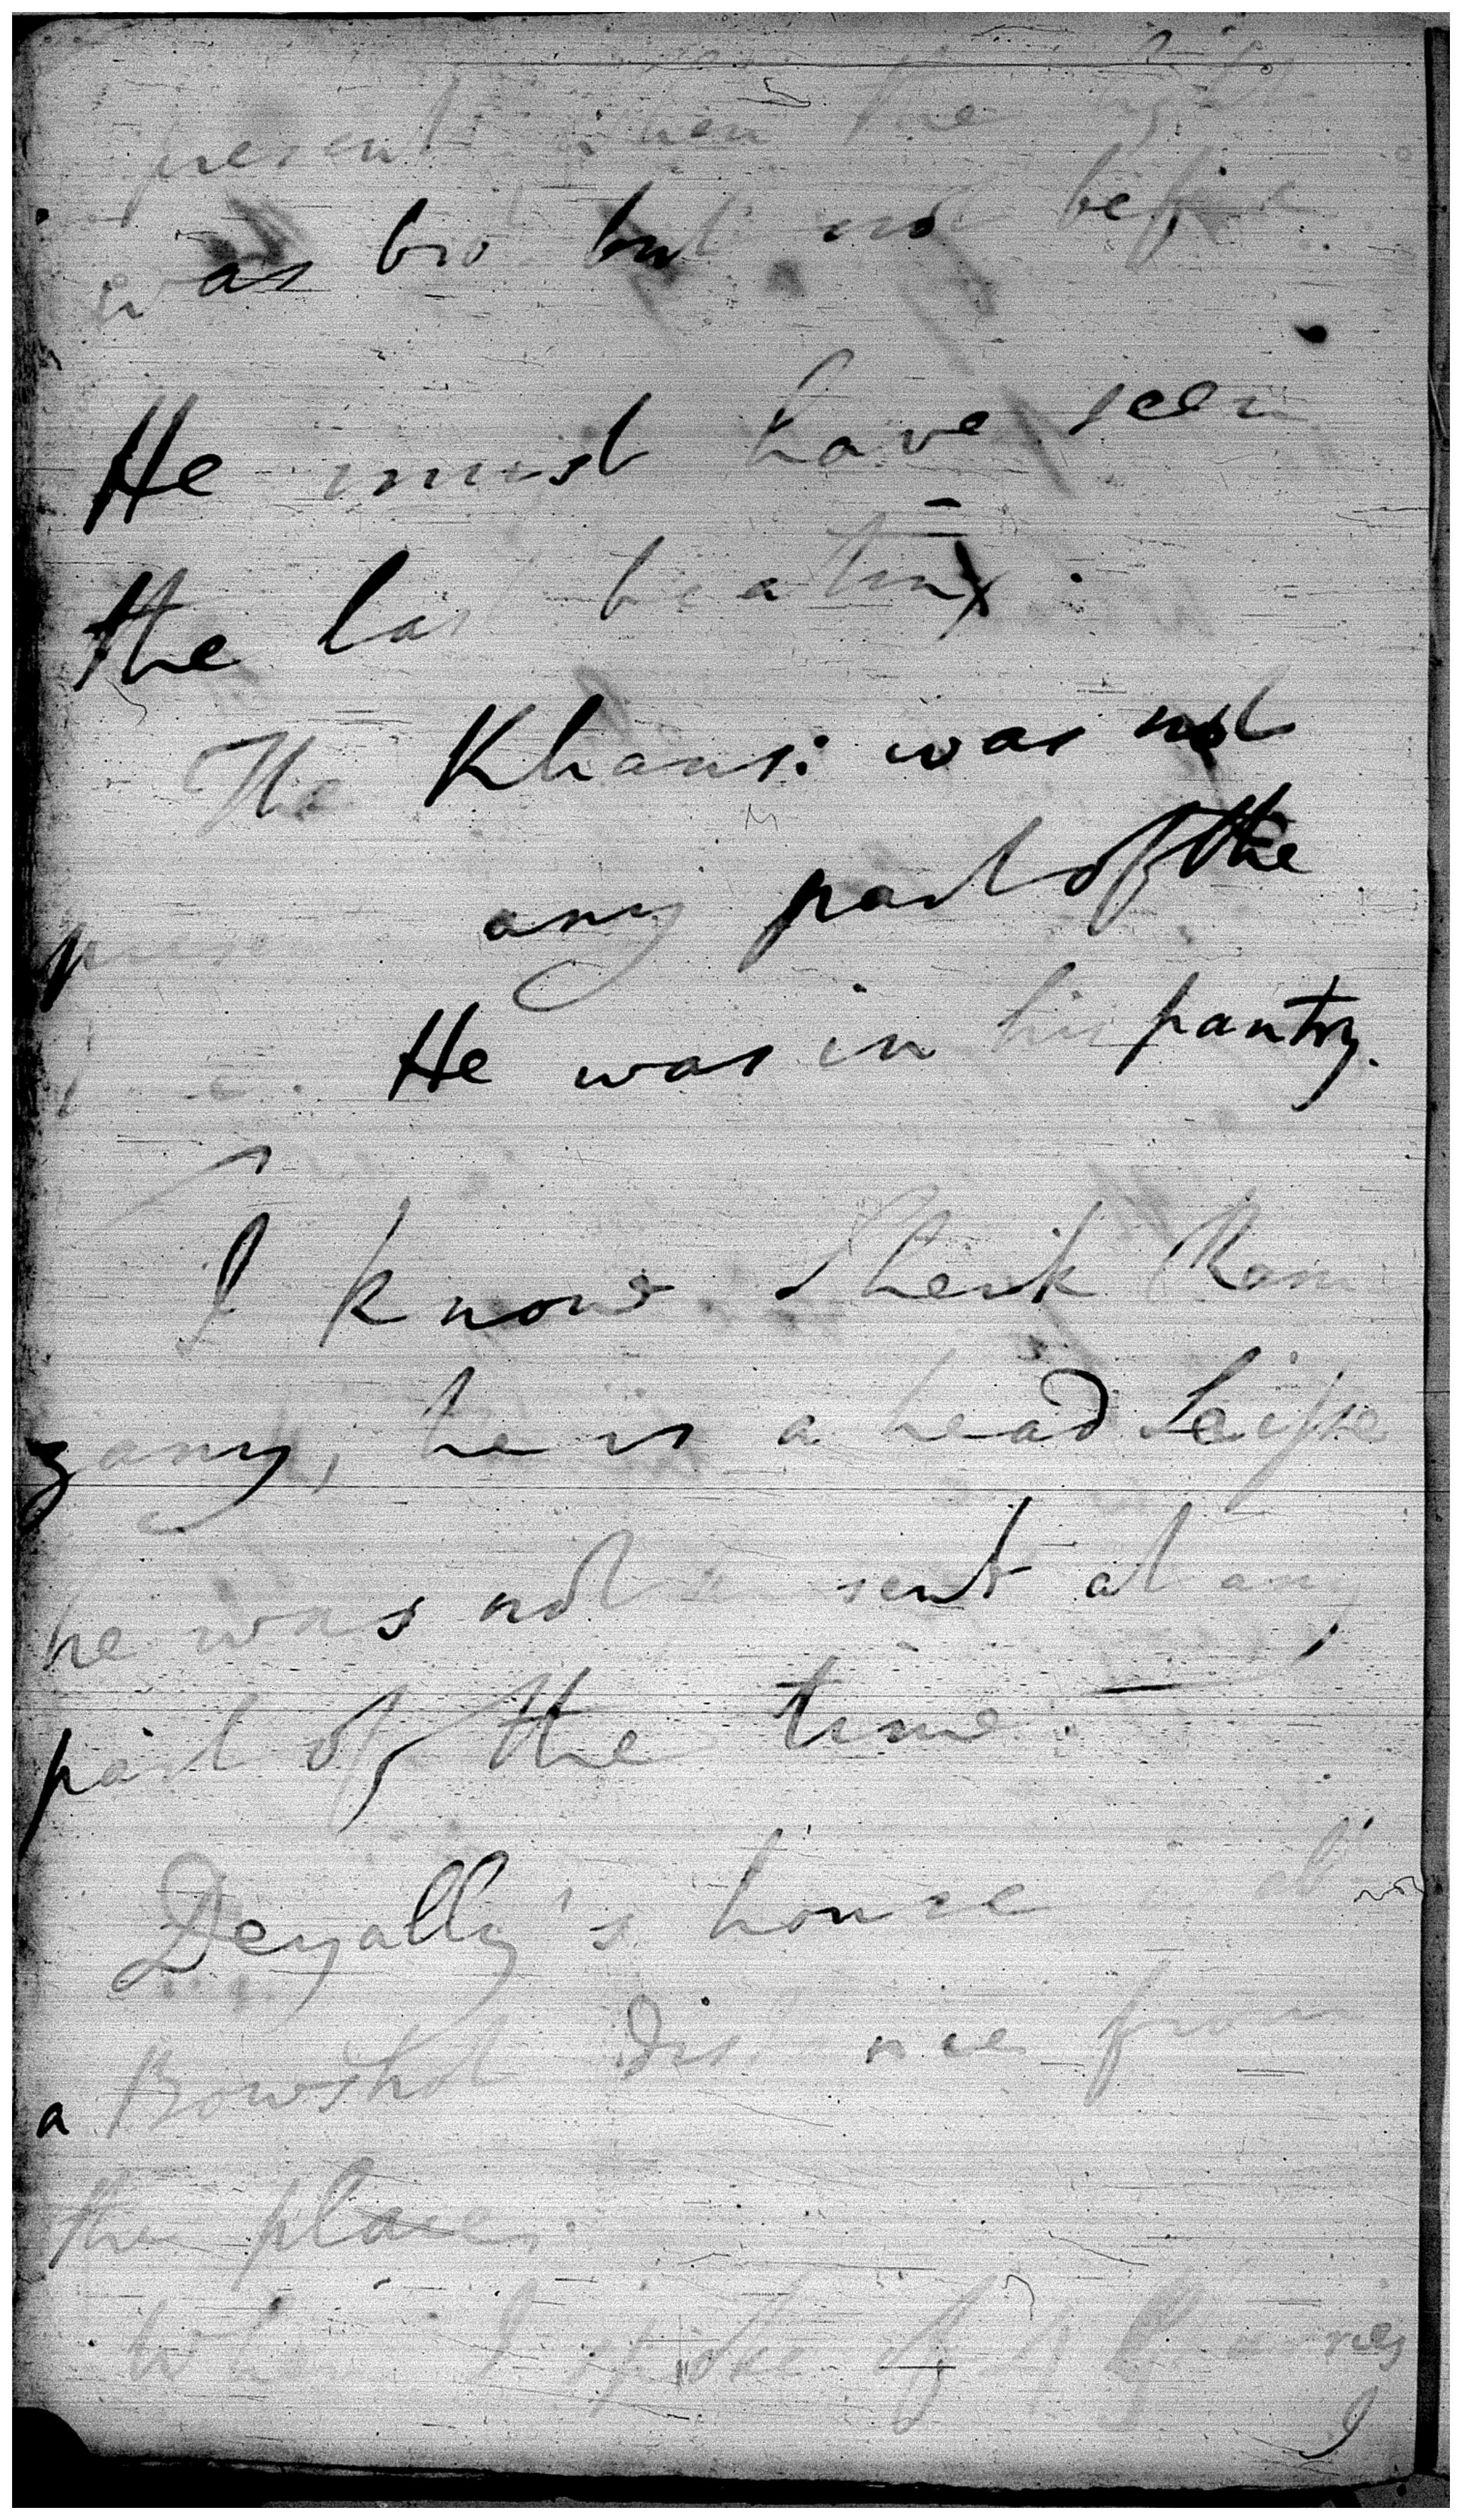 present when the light
was bro but not before
He must have seen
the last beating.
The Khans: was not
present any part of the
time. He was in his pantry.
I know Sheik Ram
zany, he is a head Seipie
he was not present at any
part of the time.
Deyally's house
a Bowshot distance from
the place.
When I spoke of 4
I